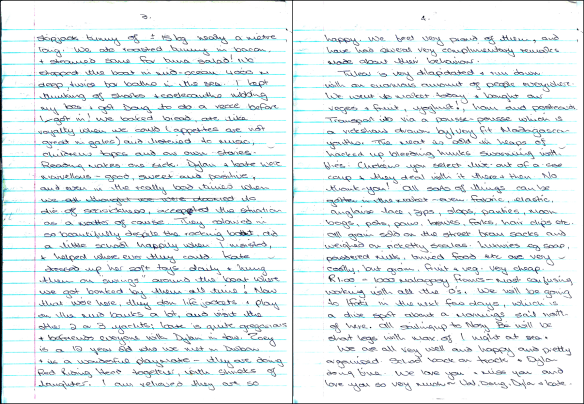 3.
skipjack tunny of ± 15 kg nearly a metre
long. We ate roasted tunny in bacon
+ steamed some for tuna salad! We
stopped the boat in mid-ocean 4000 m
deep, twice to bathe in the sea. I kept
thinking of sharks + coelacanths nibbling
my toes + got Doug to do a recce before
I got in! We baked bread, ate like
royalty when we could (appetites are not
great in gales) and listened to music,
childrens tapes and our own stories.
Reading makes me sick. Dylan + Kate were
marvellous - good, sweet and positive,
and even in the really bad times when
we all thought we were doomed to
die of seasickness, accepted the situation
as a matter of course. They adapted
so beautifully despite the rocking boat and
a little school happily when I insisted,
+ helped where ever they could. Kate
dressed up her soft toys daily + hung
them on swings around the boat where
we got bonked by them all the time! Now
that we're here, they don life jackets + play
on the mud banks a lot, and visit the
other 2 or 3 yachts. Kate is quite gregarious
+ befriends everyone with Dylan in tow. Corey
is a 10 year old who we met in Durban
+ is a wonderful playmate - they are doing
Red Riding Hood together, with shrieks of
laughter. I am relieved they are so
4.
happy. We feel very proud of them, and
have had several very complimentary remarks
made about their behaviour.
Tulear is very dilapidated + run down
with an enormous amount of people everywhere.
We went to market today + bought
vegies + fruit, yoghurt!! ham and postcards.
Transport is via a pousse-pousse which is
a rickshaw drawn by very fit Madagascar
youths. The meat is sold in heaps of
hacked up bleeding hunks swarming with
flies. Chickens you select live out of a
coup + they deal with it there + then. No
thank-you! All sorts of things can be
gotten in the market - even fabric, elastic,
anglaise lace, zips, slops, panties,
bags, pots, paw, knives, forks, hair clips etc.
all gets sold on the street
weighed on ricketty scales. Luxuries eg soap,
powdered milk, tinned food etc are very
costly, but grain, fruit + veg very cheap.
most confusing
working with all the 0's! We will be going
to Ifaty in the next few days, which is
a dive spot about a mornings sail north
of here. All sailing up to Nosy Be will be
short legs with more of 1 night at sea.
We are all very well and happy and pretty
organised. School back on track + Dylan
doing fine. We love you + miss you and
love you so very much ~ Doug, Dylan + Kate.